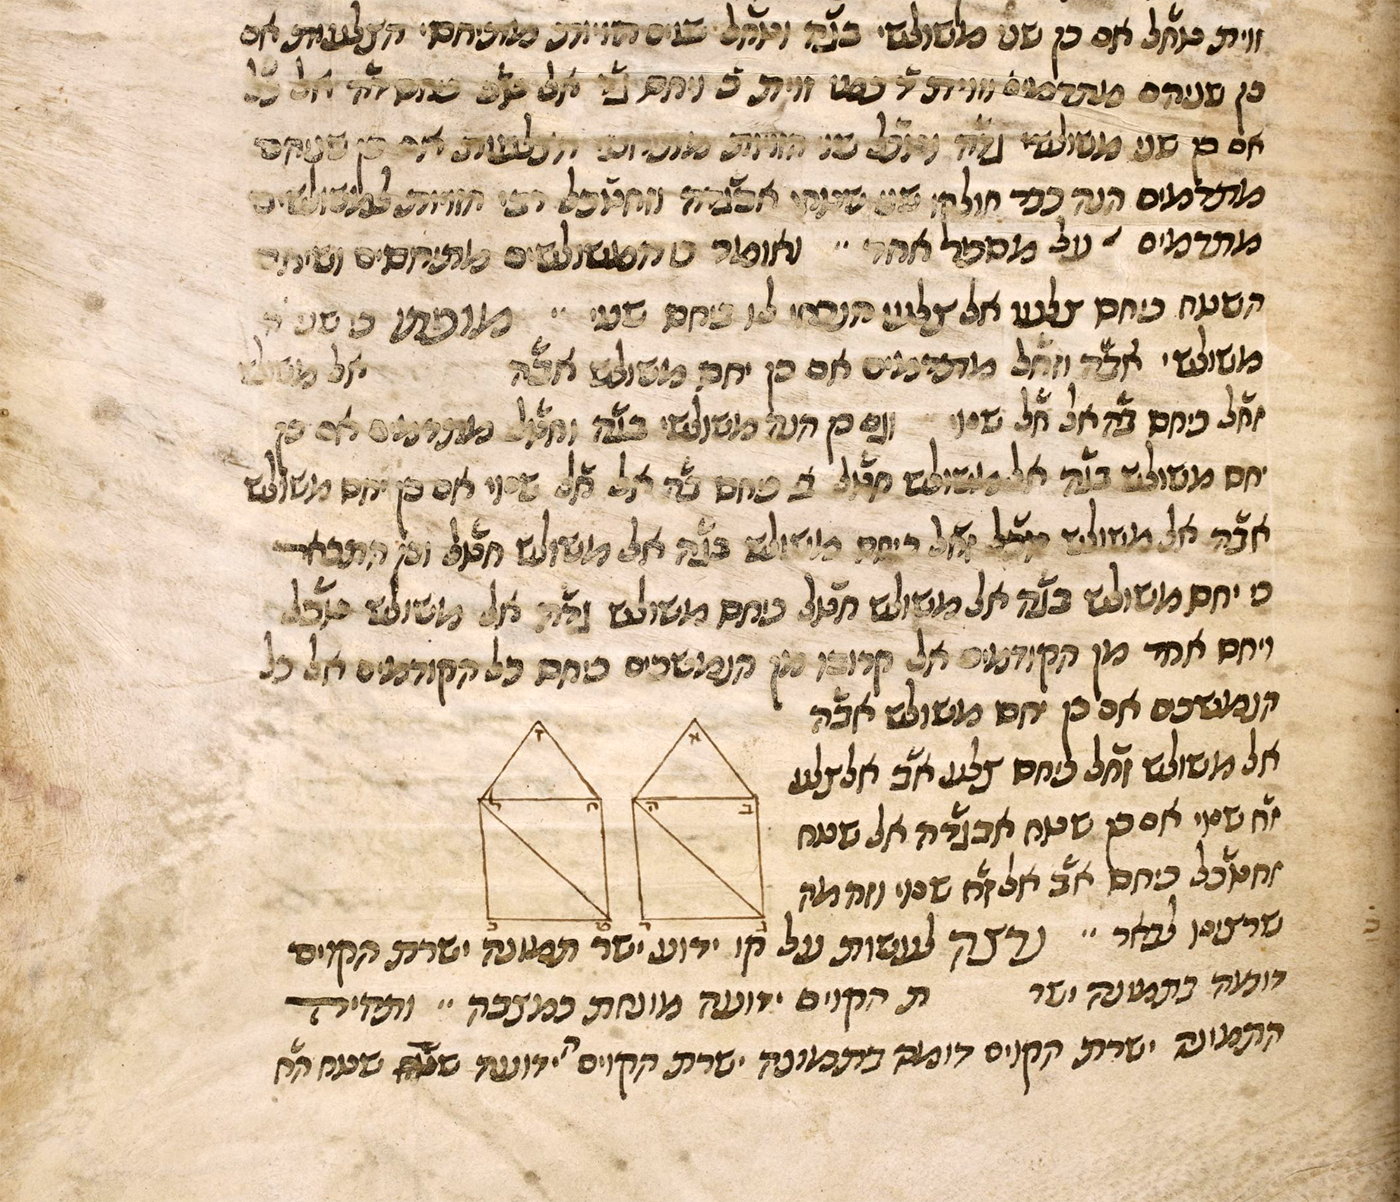 זוית מחל אם כן שני משולשי בגה וחל שנים זויות מתיחסי הצלעות אם
כן שניהם מתדמים זוית ד כמו זוית כ ויחס גד אל טכ כיחס דה אל כל
אם כן שני משולשי גדה וטכל שוי הזויות מתיחסי הצלעות אם כן שניהם
מתדמים הנה כבר חולקו שני שטחי אבגדה וזחטכל רבי הזויות למשולשים
מתדמים על מספר אחד ואומר כי המשולשים מתיחסים ושיחס
השטח כיחס צלע אל צלע הנכחי לו כיחס שנוי מופתו כי שני
משולשי אבה וזחל מתדמים אם כן יחס משולש אבה אל משולש
זחל כיחס בה אל חל שנוי וגם כן הנה משולשי בגה וחטל מתדמים אם כן
יחס משולש בגה אל משולש חטל כיחס בה אל חל שנוי אם כן יחס משולש
אבה אל משולש זחל כיחס משולש בגה אל משולש חטל וכן התבאר
כי יחס משולש בגה אל משולש חטל כיחס משולש גדה אל משולש טכל
ויחס אחד מן הקודמים אל קרובו מן הנמשכים כיחס כל הקודמים אל כל
הנמשכים אם כן יחס משולש אבה
אל משולש זחל כיחס צלע אב אל צלע
זח שנוי אם כן שטח אבגדה אל שטח
זחטכל כיחס אב אל זח שנוי וזה מה
שרצינו לבאר נרצה לעשות על קו ידוע ישר תמונה ישרת הקוים
דומה בתמונה ישר ת הקוים ידועה מונחת כמצבה ותהיה
התמונה ישרת הקוים דומה בתמונה ישרת הקוים הידועה שטח הח
א
ד
ב
ה
ה
ל
ג
ד
ט
כ